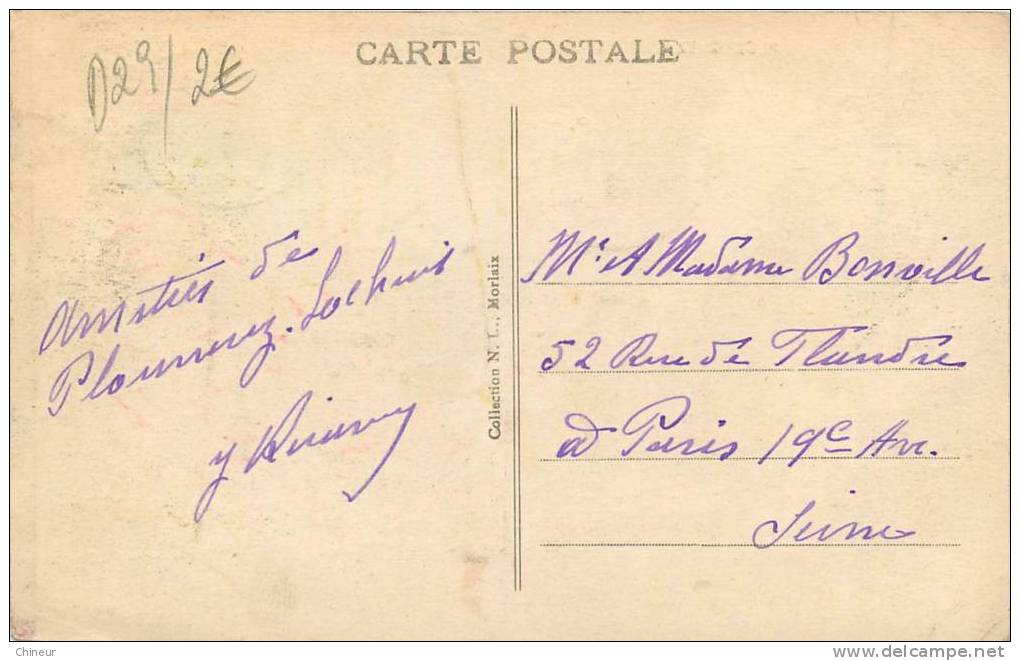 CARTE POSTALE
D29/2€
Amitiés de
Plounevez-Lochrist
Collection N. L., Morlaix
Mr. et Madame Bonville
52 Rue de Flandre
à Paris 19e Arr.
Seine
Chineur
www.delcampe.net